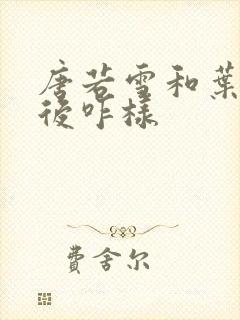 唐若雪和葉
後咋樣
費舍尔